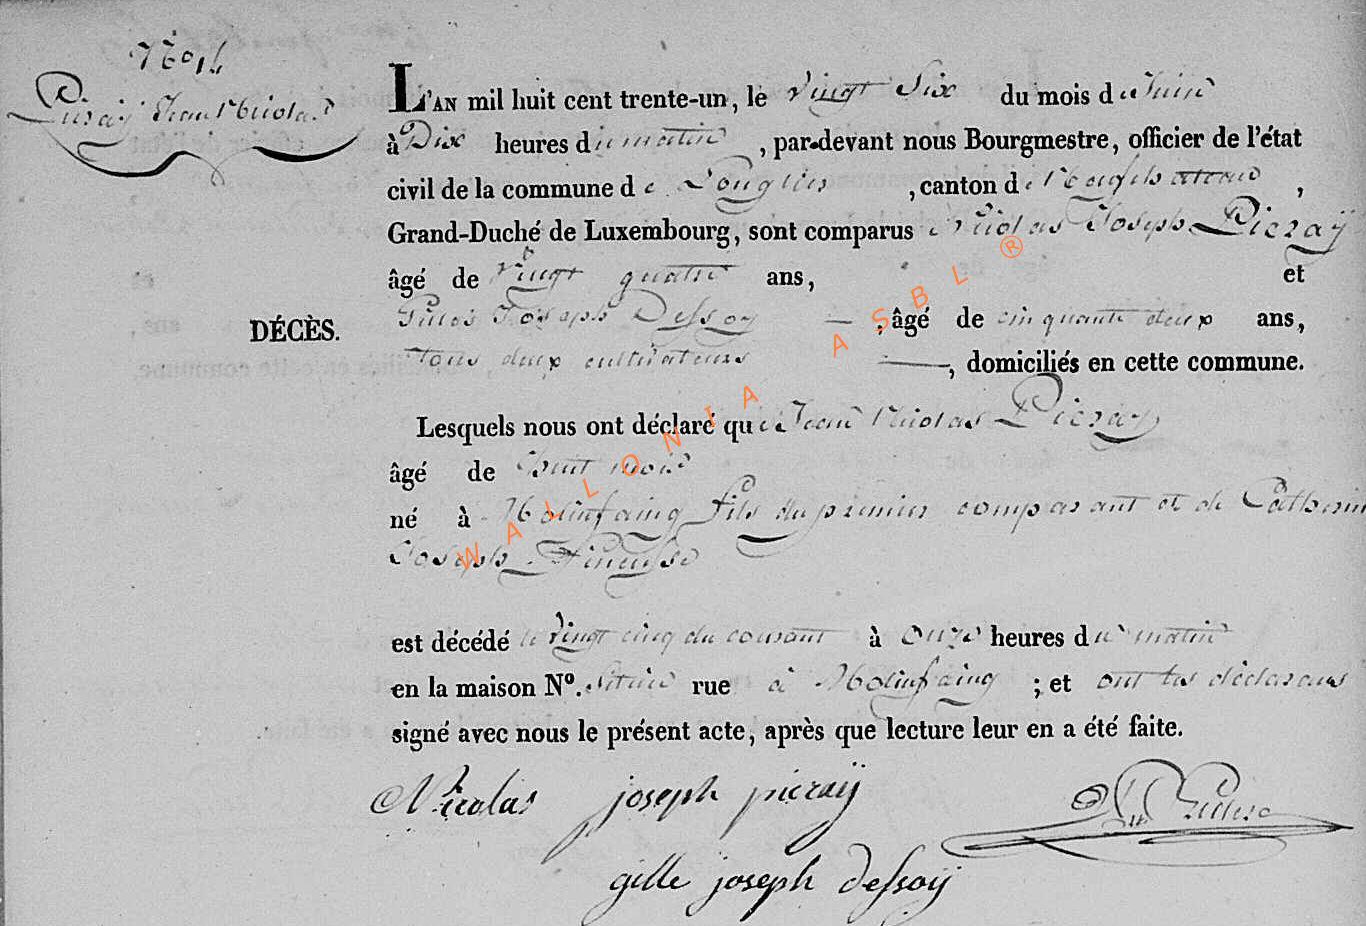 No 14
Pieraÿ Jean Nicolas
L'AN mil huit cent trente-un, le vingt Six du mois de Juin
à Dix heures du matin, par-devant nous Bourgmestre, officier de l'état
civil de la commune de Longlier, canton de Neufchateau,
Grand-Duché de Luxembourg, sont comparus Nicolas Joseph Pieraÿ
âgé de vingt quatre ans, et
Gilles Joseph Dessoy —, âgé de cinquante deux ans,
DÉCÈS.
tous deux cultivateurs —, domiciliés en cette commune.
Lesquels nous ont déclaré que Jean Nicolas Pieraÿ
âgé de huit mois
né à Molinfaing fils du premier comparant et de Catherine
Joseph
est décédé le vingt cinq du courant à onze heures du matin
en la maison No. située rue à Molinfaing ; et ont les déclarans
signé avec nous le présent acte, après que lecture leur en a été faite.
Nicolas joseph pieraÿ
gille joseph dessoÿ
WALLONIA ASBL ®